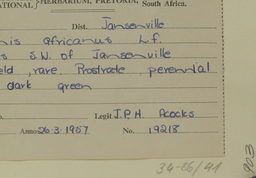 ATIONAL HERBARIUM, PRETORIA, South Africa.
Dist. Jansenville
africanus L.f.
S.W. of Jansenville
eld, rare. Prostrate, perennial
dark green
Legit J.P.H. Acocks
Anno 26.3.1957 No. 19218
34-26/41
903